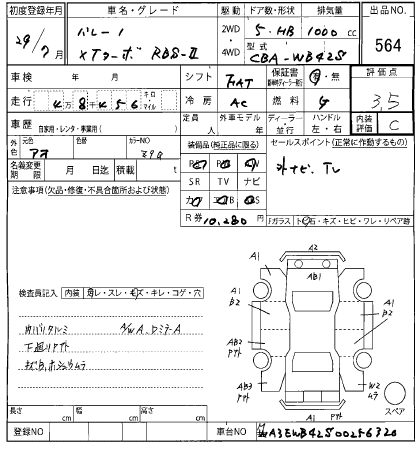 初度登録年月 車名・グレード 駆動 ドア数・形状 排気量 出品NO.
29/7月 バレーノ 2WD 5・HB 1000cc
XTターボ RBS-Ⅱ 4WD 型式 CBA-WB42S 564
車検 年 月 シフト FAT 保証書 有・無 評価点
走行 48456 キロ マイル 冷房 AC 燃料 G 3.5
車歴 自家用・レンタ・事業用( ) 定員 人 外車モデル 年 ディーラー・並行 ハンドル 左・右 内装評価 C
外色 元色 アオ 色替 カラーNO
装備品(純正品に限る) セールスポイント(正常に作動するもの)
外ナビ、TV
名義変更期限 月 日迄 積載 t
SR TV ナビ
注意事項(欠品・修復・不具合箇所および状態)
R券 10,280円
Fガラス トビ石・キズ・ヒビ・ワレ・リペア跡
A2
A1 AB1 A1
B2 B2
検査員記入 内装 スレ・キズ・キレ・コゲ・穴
A/W A、ロミラーA
下廻りサビ
AB2 A1
AB3 W2
A1
スペア
長さ cm 幅 cm 高さ cm
登録NO 車台NO MA3EWB42S00256320